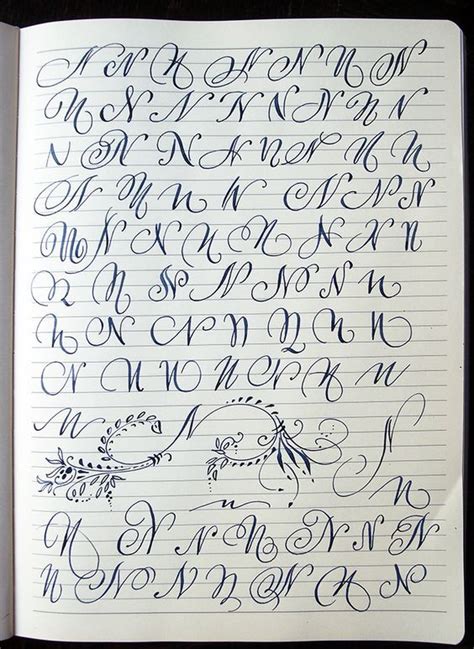 N N N N N N N N
N N N N N N N N N
N N N N N N N N N
N N N N N N N N
N N N N N N N N
N N N N N N N N
N N N N N N N N
N N N N N N N N
N N N
n n
N N N N N N N N
N N N N N N N N